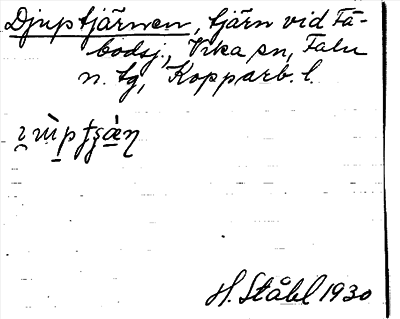 Djuptjärnen, tjärn vid Fä-
bodsj., Vika sn, Falu
n. tg, Kopparb. l.
H. Ståhl 1930